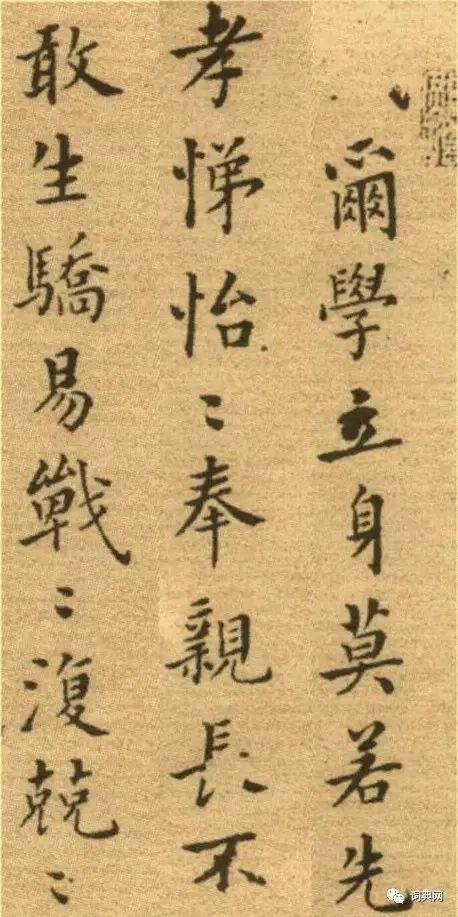 爾學立身莫若先
孝悌怡〻奉親長不
敢生驕易戰〻復兢〻
词典网